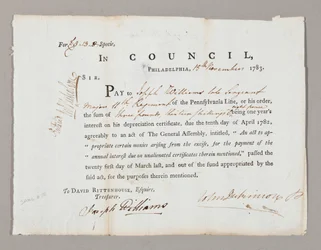 For
IN COUNCIL,
PHILADELPHIA, 18th November 1783.
SIR,
PAY to Joseph Williams late Sergeant
Major 10th Regiment of the Pennsylvania Line, or his order,
the sum of three pounds thirteen shillings being one year's
interest on his depreciation certificate, due the tenth day of April 1782,
agreeably to an act of the General Assembly, intitled, "An act to ap-
propriate certain monies arising from the excise, for the payment of the
annual interest due on unalienated certificates therein mentioned," passed the
twenty first day of March last, and out of the fund appropriated by the
said act, for the purposes therein mentioned.
To DAVID RITTENHOUSE, Esquire,
Treasurer.
Joseph Williams
John Dickinson